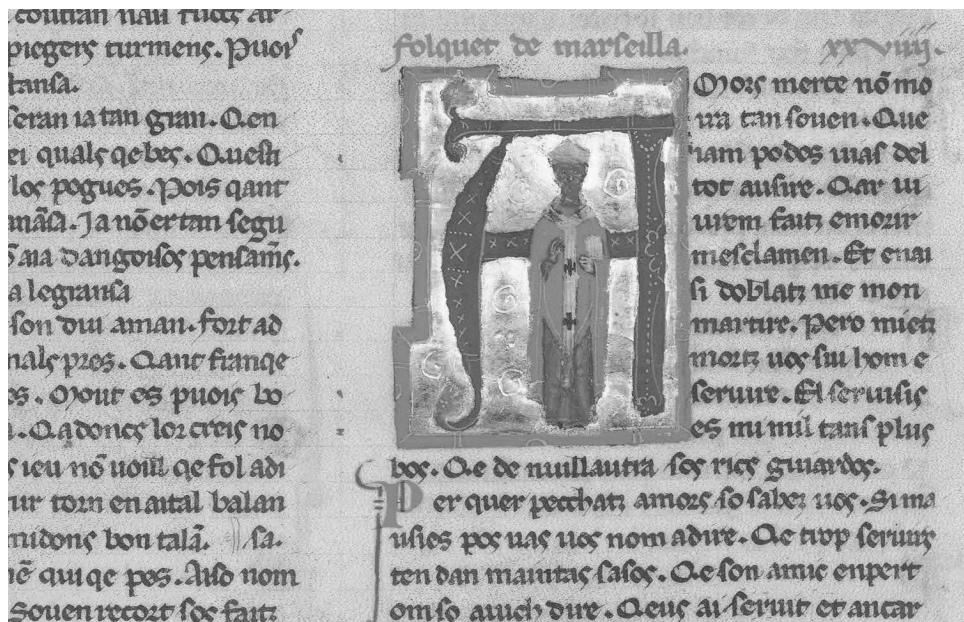 piegers turmens. Puois
tansa.
seran ia tan gran. Qen
ei quals qe bes. Questi
los pogues. Pois qant
mãsa. Ja nõ er tan segu
aia dangoisos pensamēs.
a legransa
son dui aman. fort ad
mals pres. Qant franqe
es. Mout es puois bo
. Qadoncs lor creis no
s ieu nõ uoill qe fol adi
tur torn en aital balan
midons bon talã. sa.
qui qe pes. Aiso nom
Souen recort sos faitz
folquet de marseilla. xxviiij.
Mors merce nõ mo
ira tan souen. Que
iam podes uias del
tot ausire. Qar ui
urem faitz e morir
mesclamen. Et enai
si doblatz me mon
martire. Pero mietz
mortz uos sui hom e
seruire. El seruisis
es mi mil tans plus
bos. Qe de nuill autra sos rics guiardos.
Per quer pecchatz amors so sabez uos. Si ma
usies pos uas uos nom adire. Qe trop seruirs
ten dan maintas sasos. Qe son amic en pert
om so auch dire. Qeus ai seruit et ancar